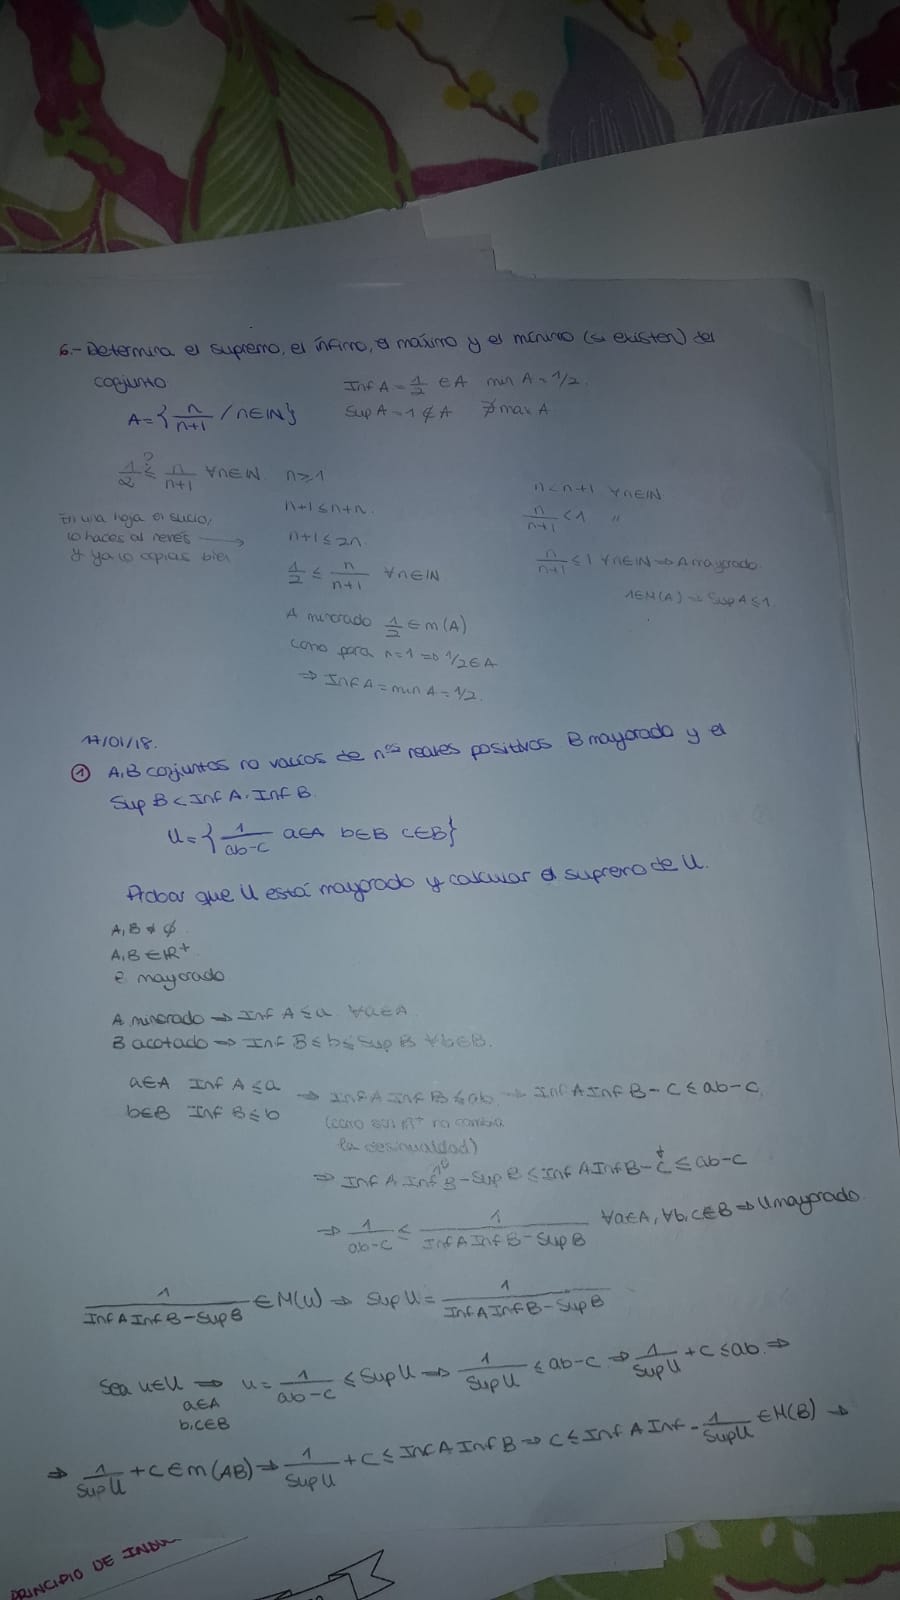 6.- Determina el supremo, el ínfimo, el máximo y el mínimo (si existen) del
conjunto
A={n/n+1 / n∈IN}
Inf A = 1/2 ∈ A min A = 1/2.
Sup A = 1 ∉ A ∄ max A
1/2 ≤? n/n+1 ∀n∈IN n≥1
n+1≤n+n.
En una hoja en sucio,
lo haces al revés →
y ya lo copias bien
n+1≤2n.
1/2 ≤ n/n+1 ∀n∈IN
A minorado 1/2 ∈ m(A)
como para n=1 ⇒ 1/2∈A
⇒ Inf A = min A = 1/2.
n<n+1 ∀n∈IN
n/n+1 <1 "
n/n+1 ≤1 ∀n∈IN ⇒ A mayorado.
1∈M(A) ⇒ Sup A≤1.
17/01/18.
① A,B conjuntos no vacíos de nos reales positivos B mayorado y el
Sup B < Inf A · Inf B.
U={1/ab-c a∈A b∈B c∈B}
Probar que U está mayorado y calcular el supremo de U.
A,B ≠ ∅
A,B ∈ IR+
B mayorado
A minorado ⇒ Inf A ≤ a ∀a∈A
B acotado ⇒ Inf B ≤ b ≤ Sup B ∀b∈B.
a∈A Inf A ≤ a
b∈B Inf B ≤ b
⇒ Inf A Inf B ≤ ab ⇒ Inf A Inf B - c ≤ ab-c
(como son IR+ no cambia
la desigualdad)
⇒ Inf A Inf B - Sup B ≤ Inf A Inf B - c ≤ ab-c
⇒ 1/ab-c ≤ 1/Inf A Inf B - Sup B ∀a∈A, ∀b,c∈B ⇒ U mayorado.
1/Inf A Inf B - Sup B ∈ M(U) ⇒ Sup U = 1/Inf A Inf B - Sup B
Sea u∈U ⇒ u = 1/ab-c ≤ Sup U ⇒ 1/Sup U ≤ ab-c ⇒ 1/Sup U + c ≤ ab. ⇒
a∈A
b,c∈B
⇒ 1/Sup U + c ∈ m(AB) ⇒ 1/Sup U + c ≤ Inf A Inf B ⇒ c ≤ Inf A Inf - 1/Sup U ∈ M(B) ⇒
PRINCIPIO DE INDU